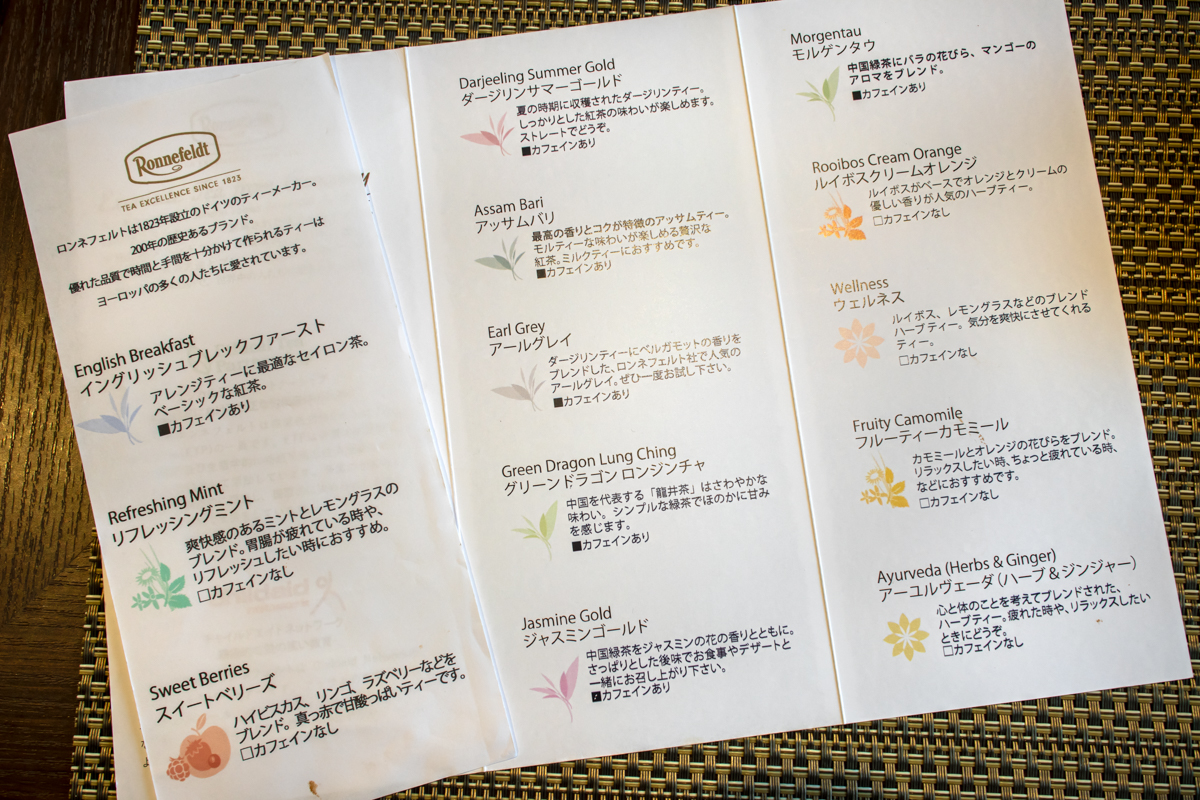 Ronnefeldt
TEA EXCELLENCE SINCE 1823
ロンネフェルトは1823年設立のドイツのティーメーカー。
200年の歴史あるブランド。
優れた品質で時間と手間を十分かけて作られるティーは
ヨーロッパの多くの人たちに愛されています。
English Breakfast
イングリッシュブレックファースト
アレンジティーに最適なセイロン茶。
ベーシックな紅茶。
■カフェインあり
Refreshing Mint
リフレッシングミント
爽快感のあるミントとレモングラスの
ブレンド。胃腸が疲れている時や、
リフレッシュしたい時におすすめ。
□カフェインなし
Sweet Berries
スイートベリーズ
ハイビスカス、リンゴ、ラズベリーなどを
ブレンド。真っ赤で甘酸っぱいティーです。
□カフェインなし
Darjeeling Summer Gold
ダージリンサマーゴールド
夏の時期に収穫されたダージリンティー。
しっかりとした紅茶の味わいが楽しめます。
ストレートでどうぞ。
■カフェインあり
Assam Bari
アッサムバリ
最高の香りとコクが特徴のアッサムティー。
モルティーな味わいが楽しめる贅沢な
紅茶。ミルクティーにおすすめです。
■カフェインあり
Earl Grey
アールグレイ
ダージリンティーにベルガモットの香りを
ブレンドした、ロンネフェルト社で人気の
アールグレイ。ぜひ一度お試し下さい。
■カフェインあり
Green Dragon Lung Ching
グリーンドラゴン ロンジンチャ
中国を代表する「龍井茶」はさわやかな
味わい。シンプルな緑茶でほのかに甘み
を感じます。
■カフェインあり
Jasmine Gold
ジャスミンゴールド
中国緑茶をジャスミンの花の香りとともに。
さっぱりとした後味でお食事やデザートと
一緒にお召し上がり下さい。
■カフェインあり
Morgentau
モルゲンタウ
中国緑茶にバラの花びら、マンゴーの
アロマをブレンド。
■カフェインあり
Rooibos Cream Orange
ルイボスクリームオレンジ
ルイボスがベースでオレンジとクリームの
優しい香りが人気のハーブティー。
□カフェインなし
Wellness
ウェルネス
ルイボス、レモングラスなどのブレンド
ハーブティー。気分を爽快にさせてくれる
ティー。
□カフェインなし
Fruity Camomile
フルーティーカモミール
カモミールとオレンジの花びらをブレンド。
リラックスしたい時、ちょっと疲れている時、
などにおすすめです。
□カフェインなし
Ayurveda (Herbs & Ginger)
アーユルヴェーダ（ハーブ＆ジンジャー）
心と体のことを考えてブレンドされた、
ハーブティー。疲れた時や、リラックスしたい
ときにどうぞ。
□カフェインなし